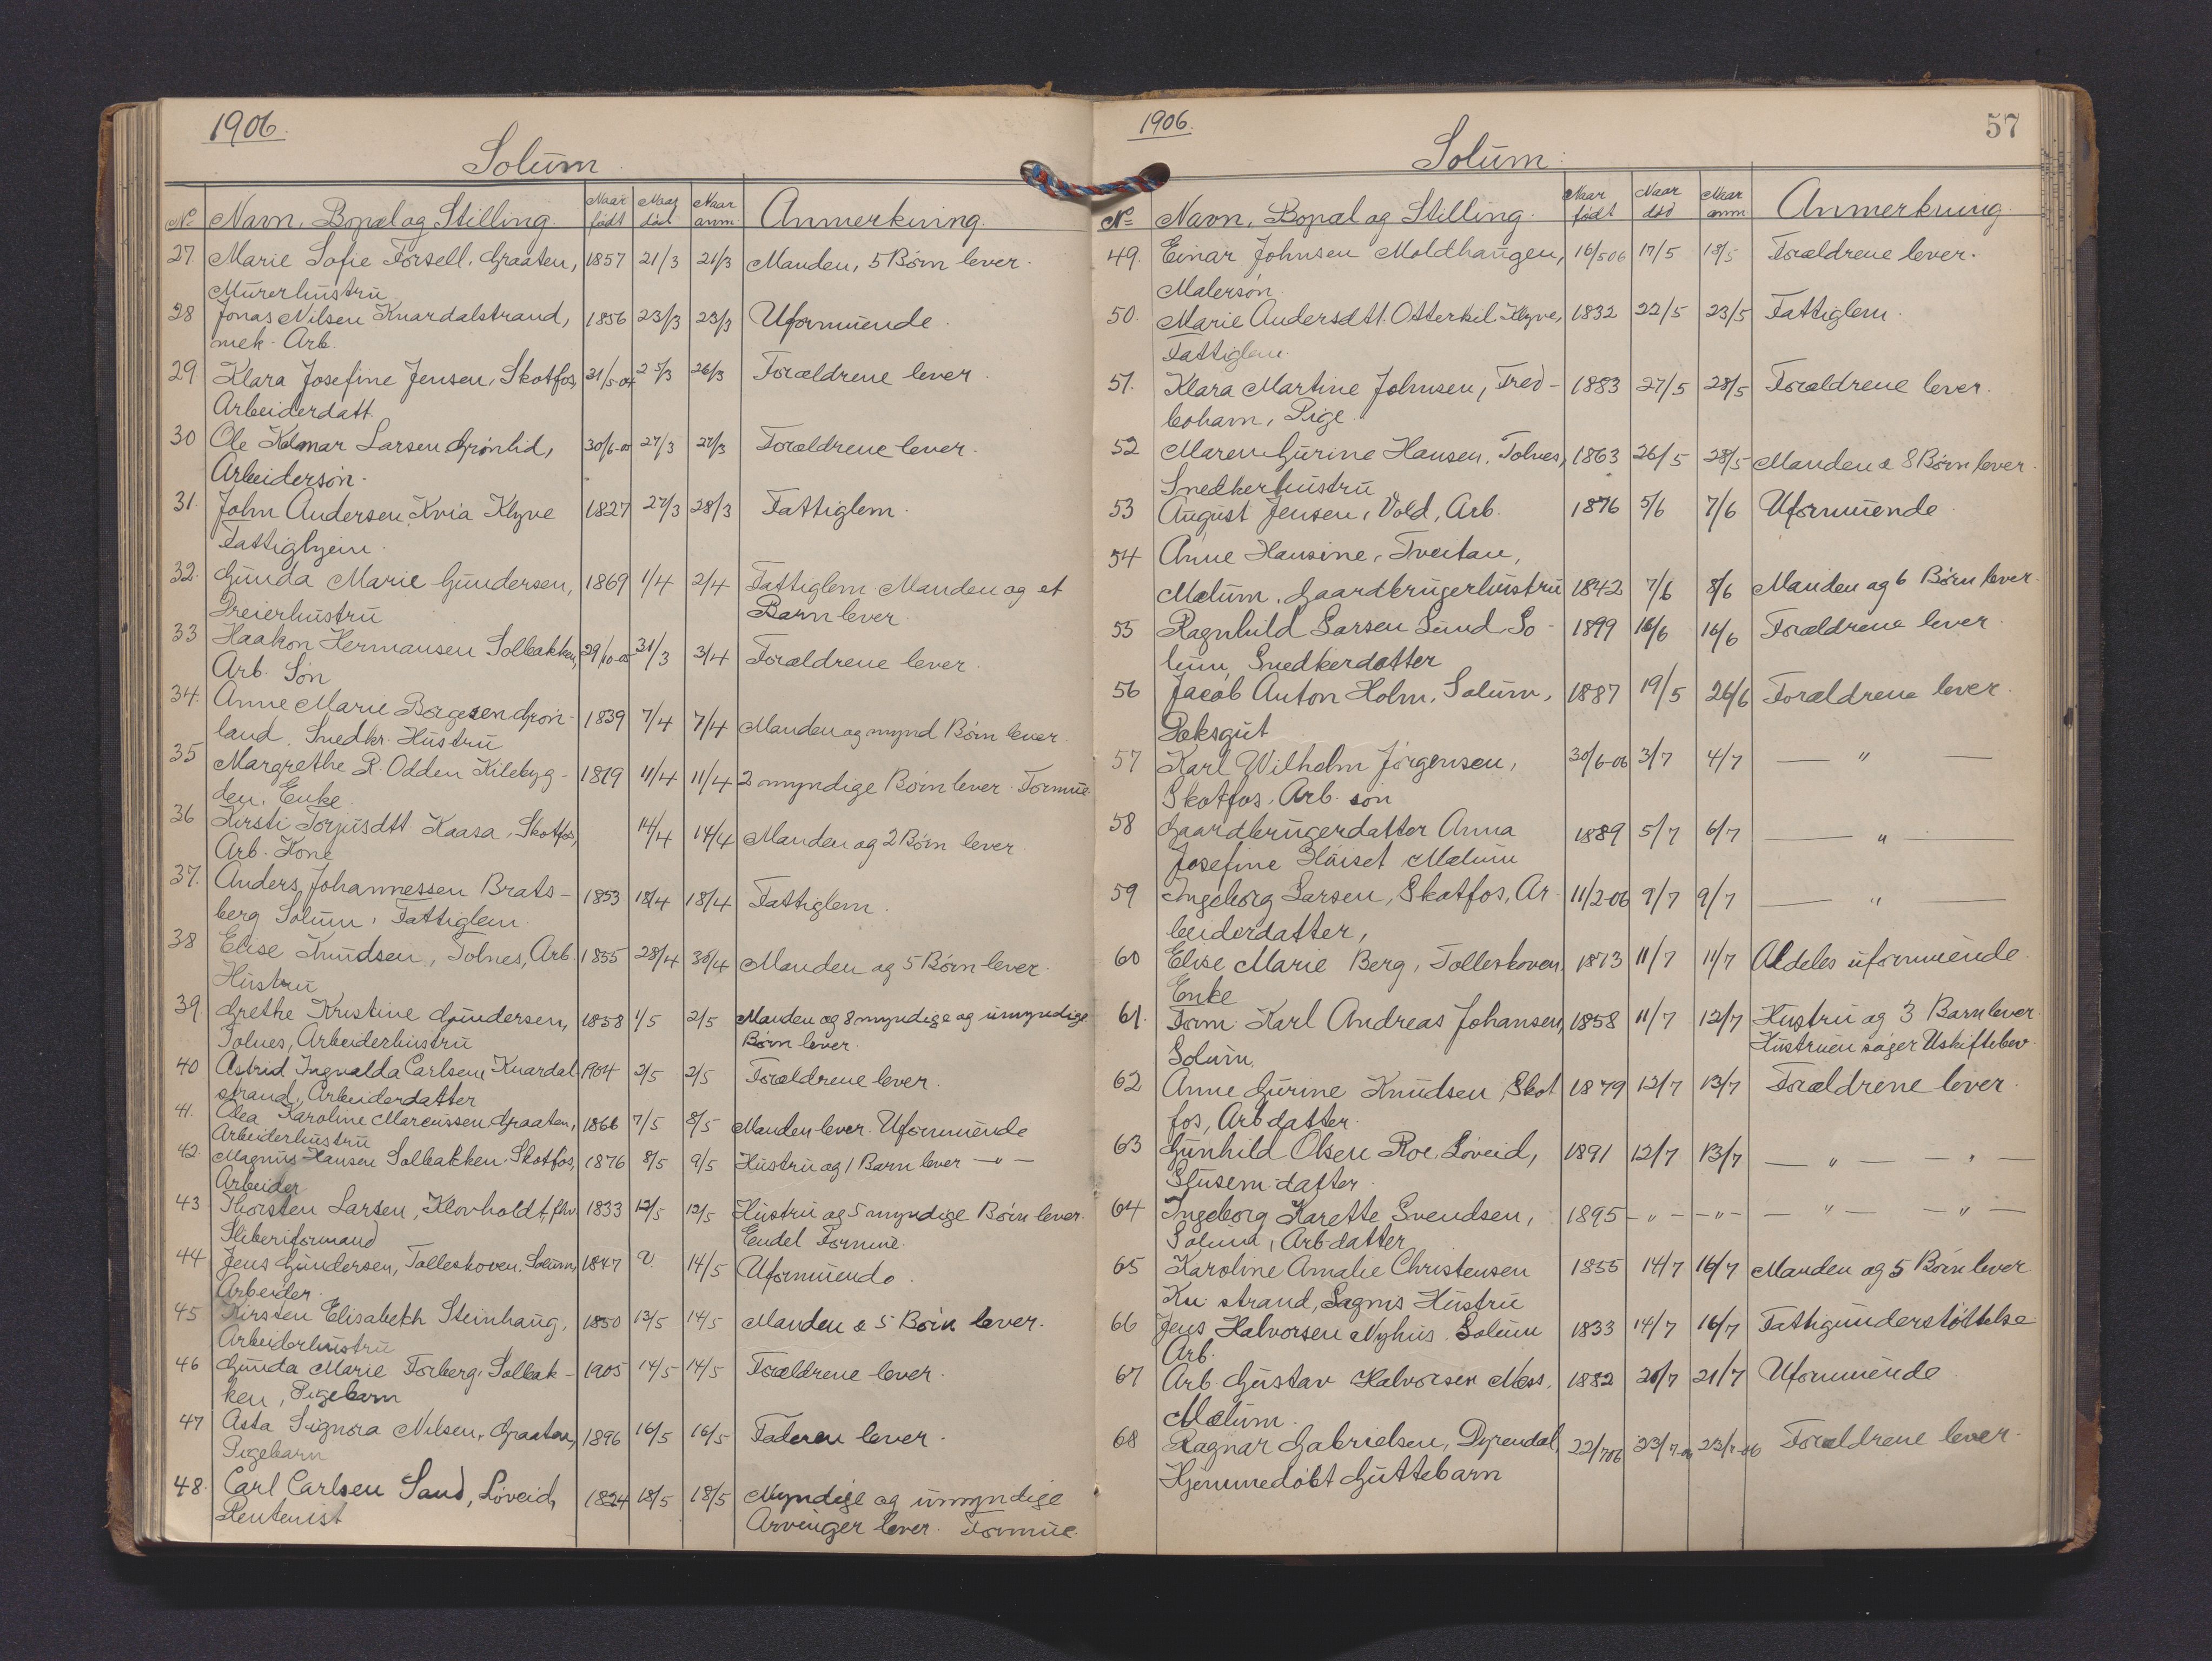 1906.
Solum.
No Navn, Bopæl og Stilling. Naar født Naar død Naar anm. Anmerkning.
27. Marie Sofie Forsell, Graaten, 1857 21/3 21/3 Manden, 5 Børn lever.
Murerhustru
28 Jonas Nilsen Knardalstrand, 1856 23/3 23/3 Uformuende.
mek. Arb.
29. Klara Josefine Jensen, Skotfos, 21/5-04 25/3 26/3 Forældrene lever.
Arbeiderdatt.
30 Ole Kolmar Larsen Grønlid, 30/6-05 27/3 27/3 Forældrene lever.
Arbeidersøn.
31. John Andersen Kvia Klyve 1827 27/3 28/3 Fattiglem.
Fattighjem.
32. Gunda Marie Gundersen, 1869 1/4 2/4 Fattiglem Manden og et
Dreierhustru Barn lever.
33 Haakon Hermansen Solbakken, 29/10-05 31/3 3/4 Forældrene lever.
Arb. Søn
34. Anne Marie Borgesen Grøn- 1839 7/4 7/4 Manden og mynd Børn lever
land. Snedkr. Hustru
35 Margrethe P. Odden Kilebyg- 1819 11/4 11/4 2 myndige Børn lever. Formue.
den. Enke.
36 Kirsti Torjusdtt. Kaasa, Skotfos, 14/4 14/4 Manden og 2 Børn lever.
Arb. Kone
37. Anders Johannessen Brats- 1853 18/4 18/4 Fattiglem.
berg Solum, Fattiglem.
38 Elise Knudsen, Tolnes, Arb. 1855 28/4 30/4 Manden og 5 Børn lever.
Hustru
39. Grethe Kristine Gundersen, 1858 1/5 2/5 Manden og 8 myndige og umyndige
Tolnes, Arbeiderhustru Børn lever.
40 Astrid Ingvalda Carlsen Knardal 1904 2/5 2/5 Forældrene lever.
strand, Arbeiderdatter
41. Olea Karoline Marcussen Graaten, 1866 7/5 8/5 Manden lever. Uformuende
Arbeiderhustru
42. Magnus Hansen Solbakken. Skotfos, 1876 8/5 9/5 Hustru og 1 Barn lever — " —
Arbeider
43 Thorsten Larsen, Klovholdt, fhv. 1833 12/5 12/5 Hustru og 5 myndige Børn lever.
Sliberiformand Endel Formue.
44 Jens Gundersen, Tolleskoven. Solum, 1847 ? 14/5 Uformuende.
Arbeider.
45 Kirsten Elisabeth Steinhaug, 1850 13/5 14/5 Manden & 5 Børn lever.
Arbeiderhustru
46 Gunda Marie Forberg, Solbak- 1905 14/5 14/5 Forældrene lever.
ken, Pigebarn
47 Asta Signora Nilsen, Graaten, 1896 16/5 16/5 Faderen lever.
Pigebarn
48. Carl Carlsen Sand, Løveid, 1824 18/5 18/5 Myndige og umyndige
Rentenist Arvinger lever. Formue.
1906. 57
Solum.
No Navn, Bopæl og Stilling. Naar født Naar død Naar anm Anmerkning.
49. Einar Johnsen Moldhaugen, 16/5 06 17/5 18/5 Forældrene lever.
Malersøn.
50. Marie Andersdtt. Otterkil. Klyve, 1832 22/5 23/5 Fattiglem.
Fattiglem.
51. Klara Martine Johnsen, Fred- 1883 27/5 28/5 Forældrene lever.
bohavn, Pige.
52 Maren Gurine Hansen, Tolnes, 1863 26/5 28/5 Manden & 8 Børn lever.
Snedkerhustru
53 August Jensen, Vold, Arb. 1876 5/6 7/6 Uformuende
54 Anne Hansine, Tveitan,
Mælum, Gaardbrugerhustru 1842 7/6 8/6 Manden og 6 Børn lever.
55 Ragnhild Larsen Lund, So- 1899 16/6 16/6 Forældrene lever
lum, Snedkerdatter
56 Jacob Anton Holm, Solum, 1887 19/5 26/6 Forældrene lever.
Dæksgut
57 Karl Wilhelm Jørgensen, 30/6-06 3/7 4/7 — " —
Skotfos. Arb. søn
58 Gaardbrugerdatter Anna 1889 5/7 6/7 — " —
Josefine Mælum
59 Ingeborg Larsen, Skotfos, Ar- 11/2-06 9/7 9/7 — " —
beiderdatter,
60 Elise Marie Berg, Tolleskoven 1873 11/7 11/7 Aldeles uformuende.
Enke
61. Form. Karl Andreas Johansen, 1858 11/7 12/7 Hustru og 3 Barn lever.
Solum. Hustruen søger Uskiftebev.
62 Anne Gurine Knudsen, Skot 1879 12/7 13/7 Forældrene lever.
fos, Arb datter.
63 Gunhild Olsen Roe, Løveid, 1891 12/7 13/7 — " — — " —
Slusem. datter.
64 Ingeborg Karette Svendsen, 1895 — " — — " — — " — — " —
Solum, Arb-datter
65 Karoline Amalie Christensen 1855 14/7 16/7 Manden og 5 Børn lever
Kn. strand, Sagms Hustru
66 Jens Halvorsen Nyhus. Solum 1833 14/7 16/7 Fattigunderstøttelse
Arb.
67 Arb. Gustav Halvorsen Mess. 1882 20/7 21/7 Uformuende
Mælum.
68 Ragnar Gabrielsen, Dyrendal, 22/7 06 23/7-06 23/7-06 Forældrene lever.
Hjemmedøbt Guttebarn